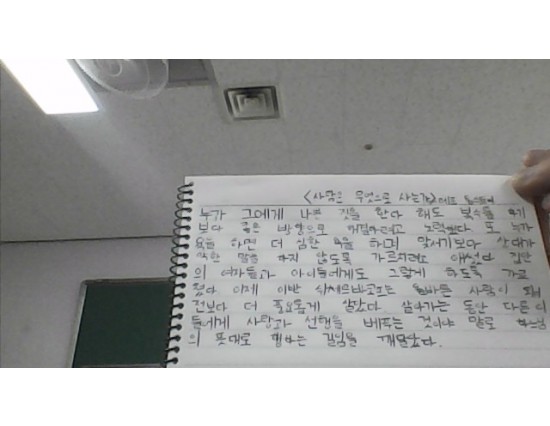 <사람은 무엇으로 사는가> 레프 톨스토이
누가 그에게 나쁜 짓을 한다 해도 복수를 하기
보다 좋은 방향으로 해결하려고 노력했다 또 누가
욕을 하면 더 심한 욕을 하려고 맞서기보다 상대가
악한 말을 하지 않도록 가르치려고 애썼다 집안
의 여자들과 아이들에게도 그렇게 하도록 가르
쳤다 이제 이반 시체르바코프는 올바른 사람이 되어
전보다 더 풍요롭게 살았다 살아가는 동안 다른 이
들에게 사랑과 선행을 베푸는 것이야 말로 하느님
의 뜻대로 행하는 길임을 깨달았다.